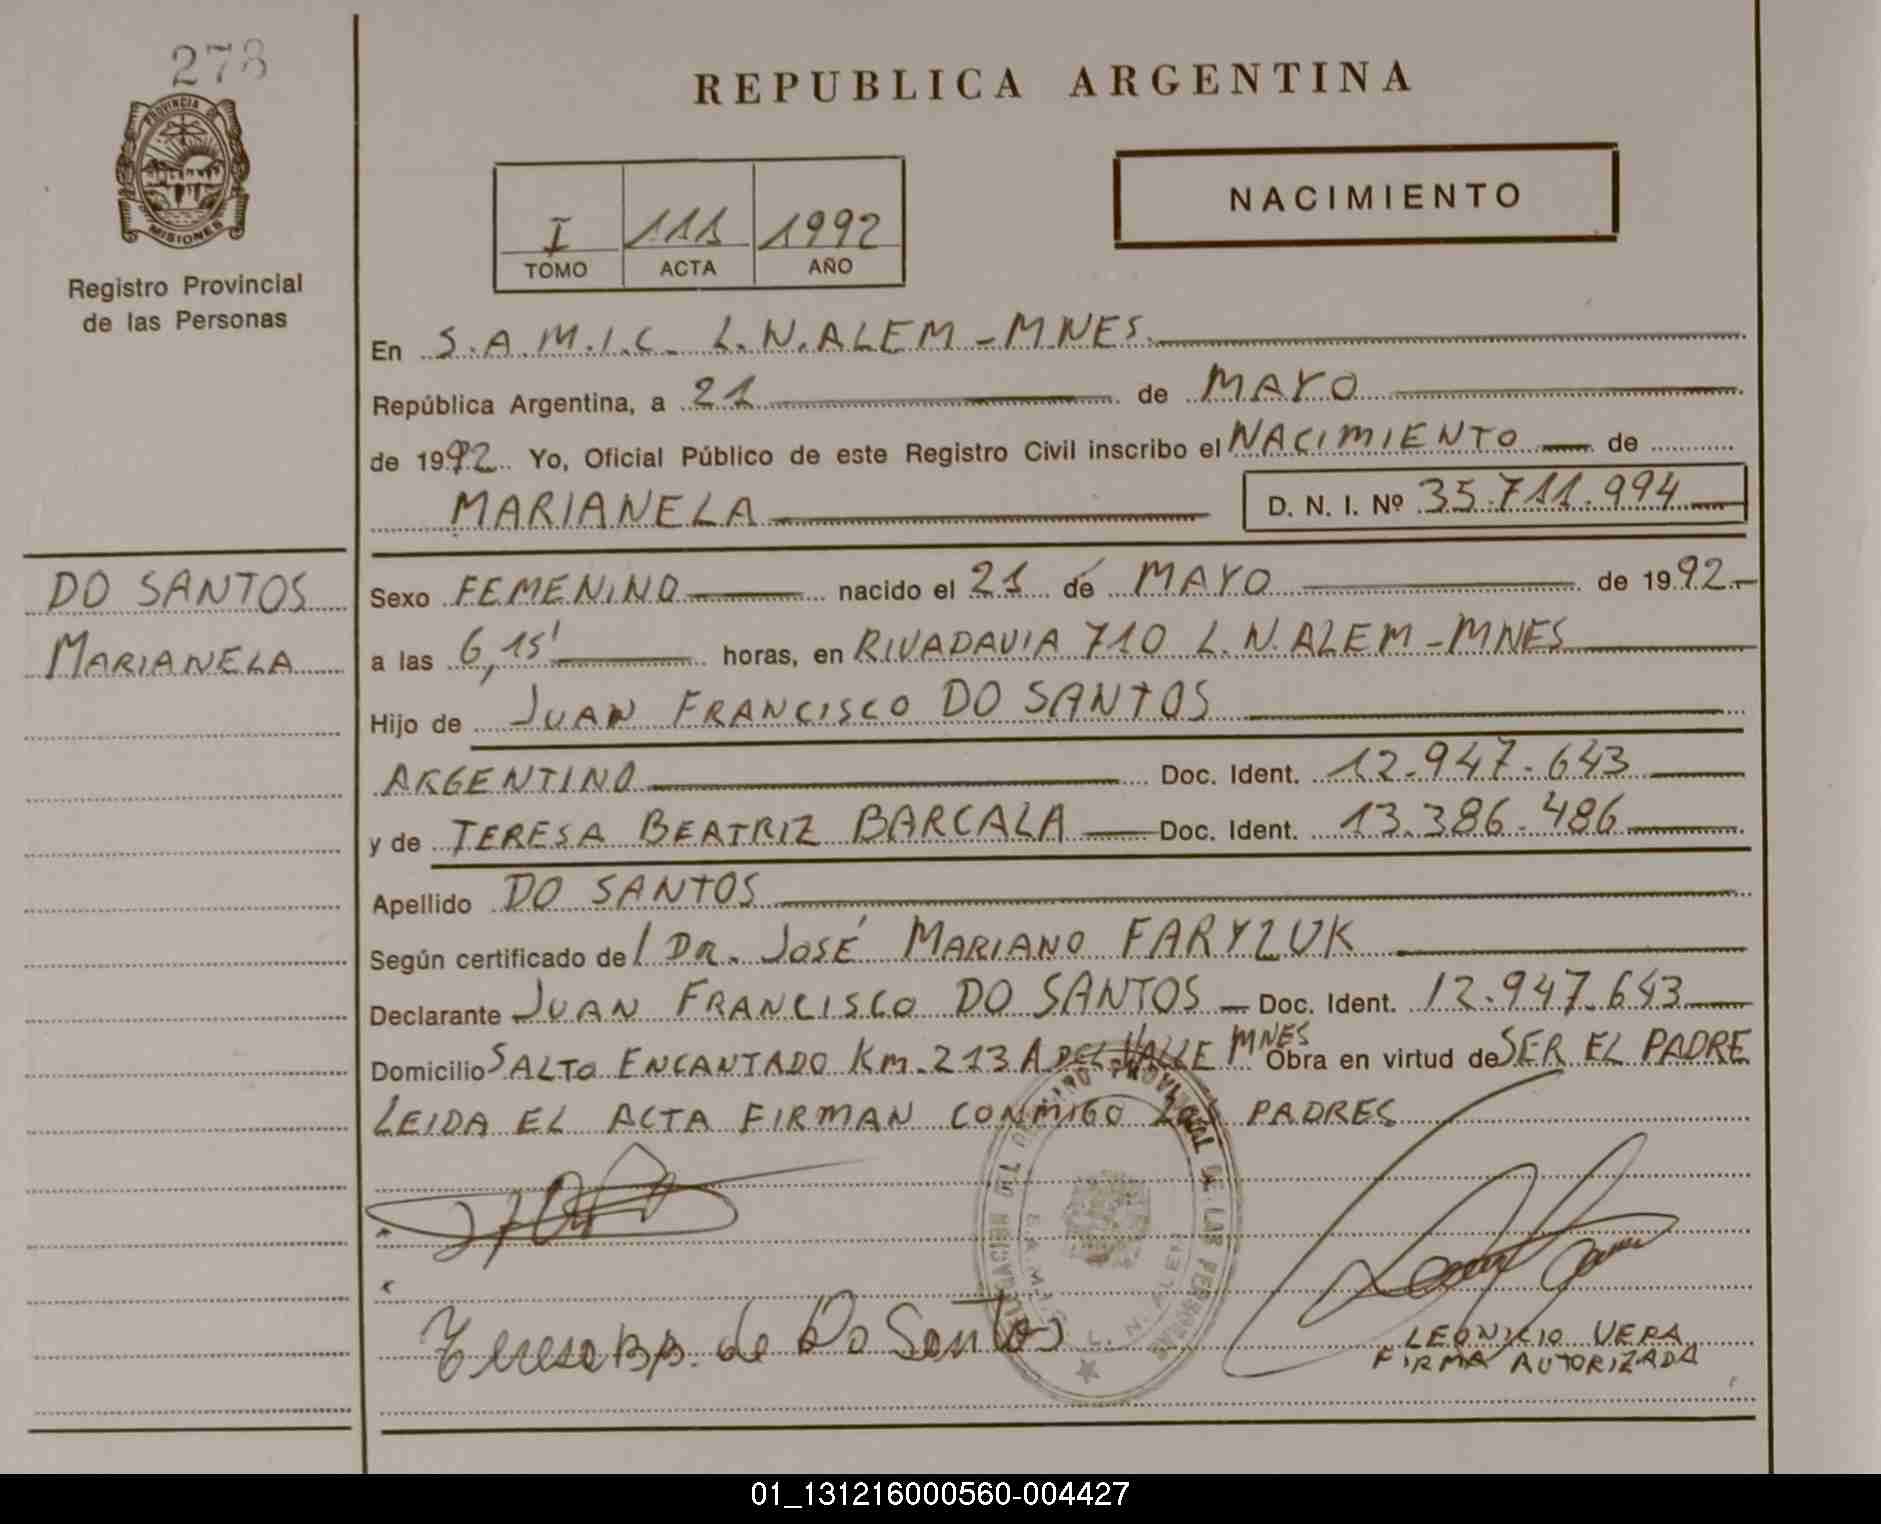 278
PROVINCIA
MISIONES
Registro Provincial
de las Personas
REPUBLICA ARGENTINA
I 111 1992
TOMO ACTA AÑO
NACIMIENTO
En S.A.M.I.C. L.N.ALEM-MNES.
República Argentina, a 21 de MAYO
de 1992 Yo, Oficial Público de este Registro Civil inscribo el NACIMIENTO de
MARIANELA D. N. I. Nº 35.711.994
DO SANTOS
MARIANELA
Sexo FEMENINO nacido el 21 de MAYO de 1992.-
a las 6,15' horas, en RIVADAVIA 710 L.N.ALEM-MNES
Hijo de JUAN FRANCISCO DO SANTOS
ARGENTINO Doc. Ident. 12.947.643
y de TERESA BEATRIZ BARCALA Doc. Ident. 13.386.486
Apellido DO SANTOS
Según certificado del DR. JOSÉ MARIANO FARYZUK
Declarante JUAN FRANCISCO DO SANTOS - Doc. Ident. 12.947.643
Domicilio SALTO ENCANTADO KM.213 A DEL VALLE MNES Obra en virtud de SER EL PADRE
LEIDA EL ACTA FIRMAN CONMIGO LOS PADRES
Teresa B B. de Do Santos
L. N. ALEM
LEONICIO VERA
FIRMA AUTORIZADA
01_131216000560-004427